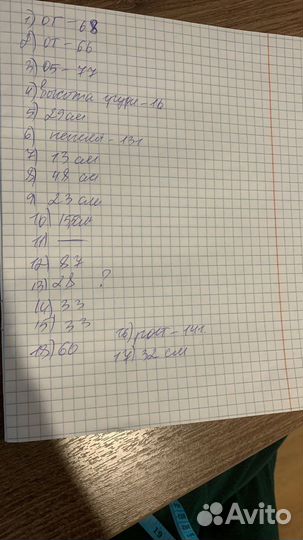 1) ОГ - 68
2) ОТ - 66
3) ОБ - 77
4) Высота груди - 16
5) 29 см
6) - 131
7) 13 см
8) 48 см
9) 23 см
10) 15 см
11) —
12) 87
13) 28 ?
14) 33
15) 33
16) рост - 141
13) 60
17) 32 см
Avito